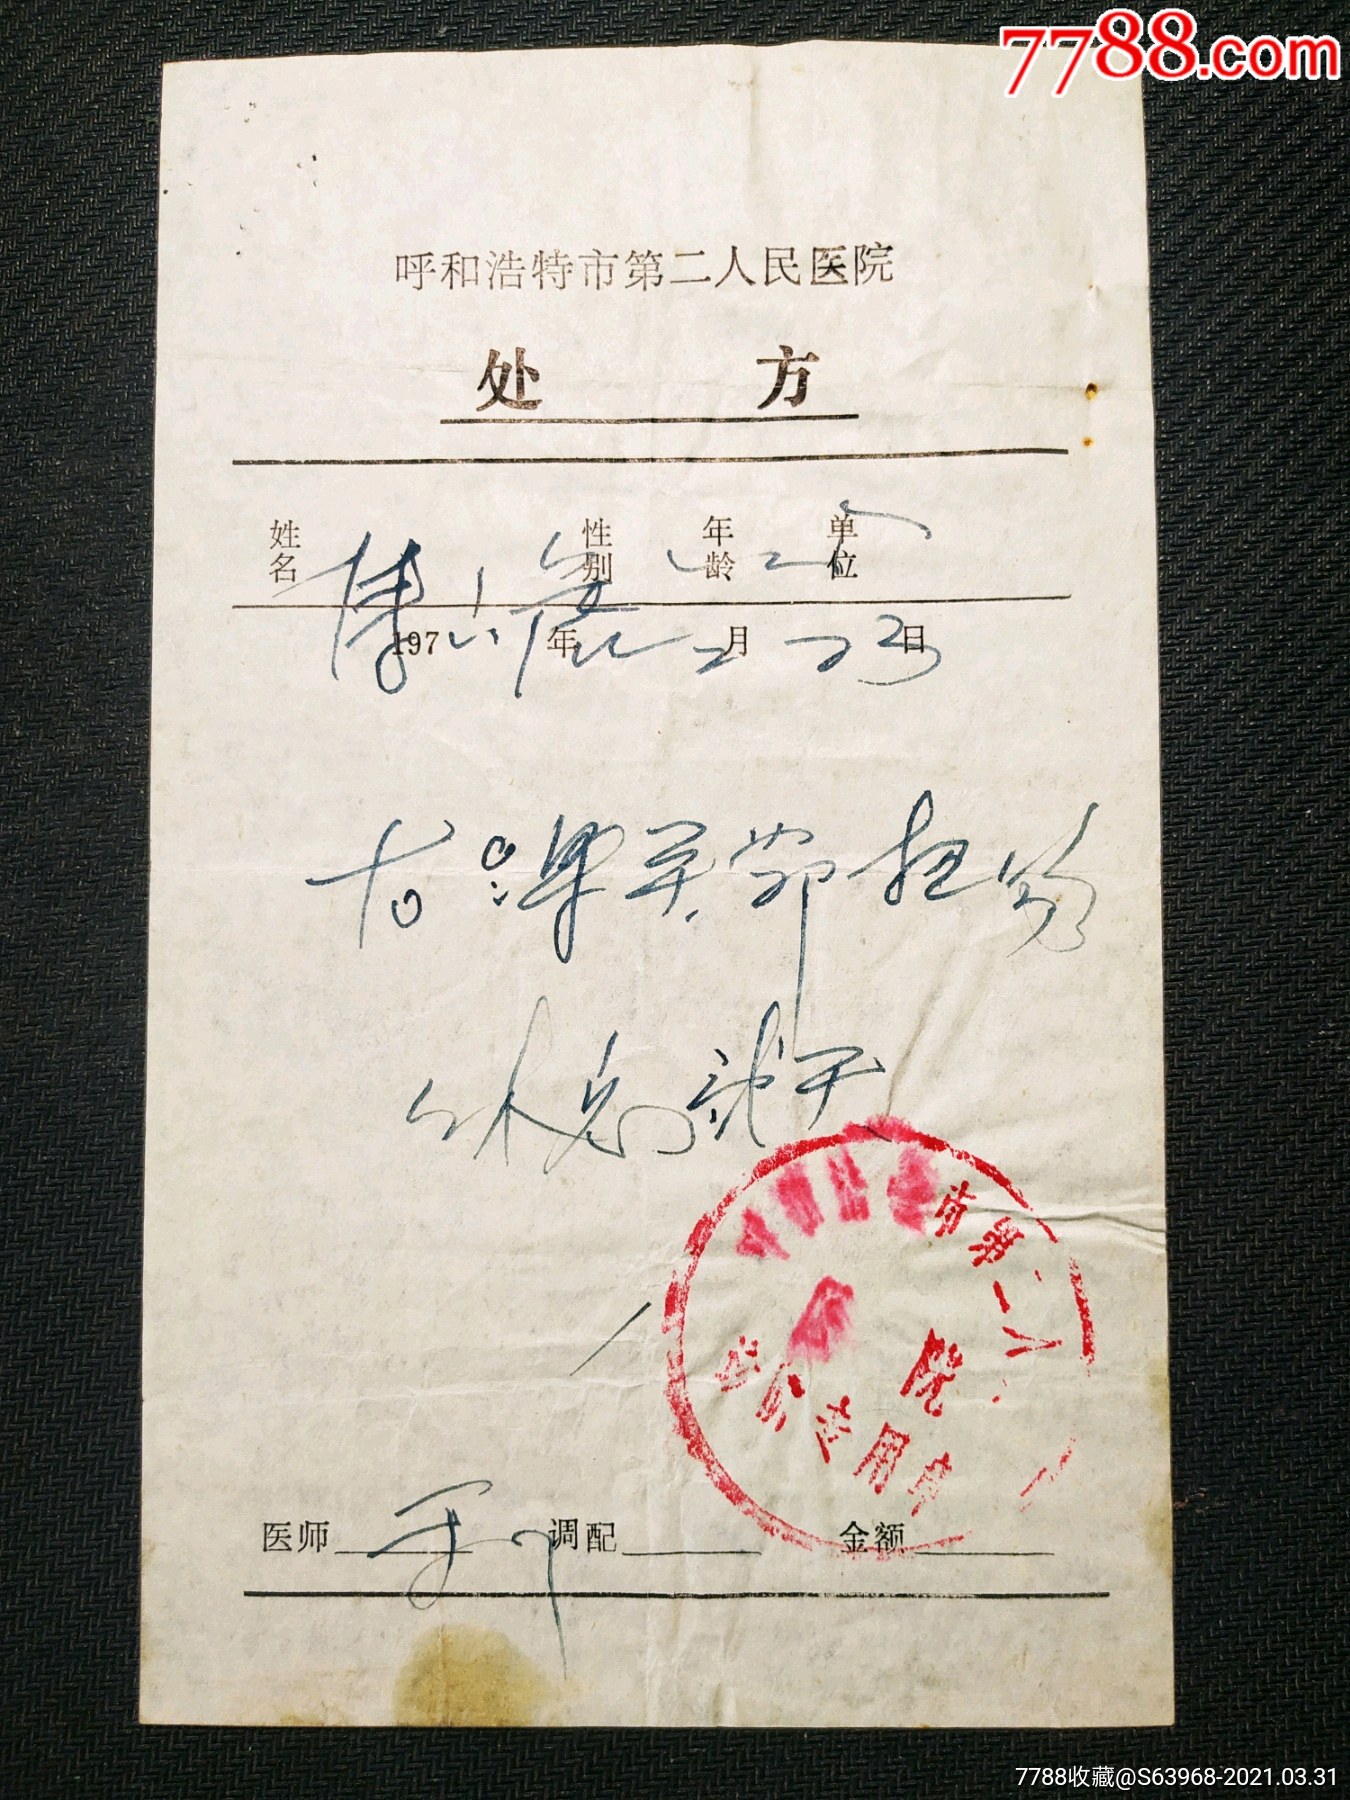 7788.com
呼和浩特市第二人民医院
处 方
姓名 性别 年龄 单位
197 年 月 23 日
右踝关节扭伤
休息贰天
市第二人
院
专用章
医师 调配 金额
7788收藏@S63968-2021.03.31